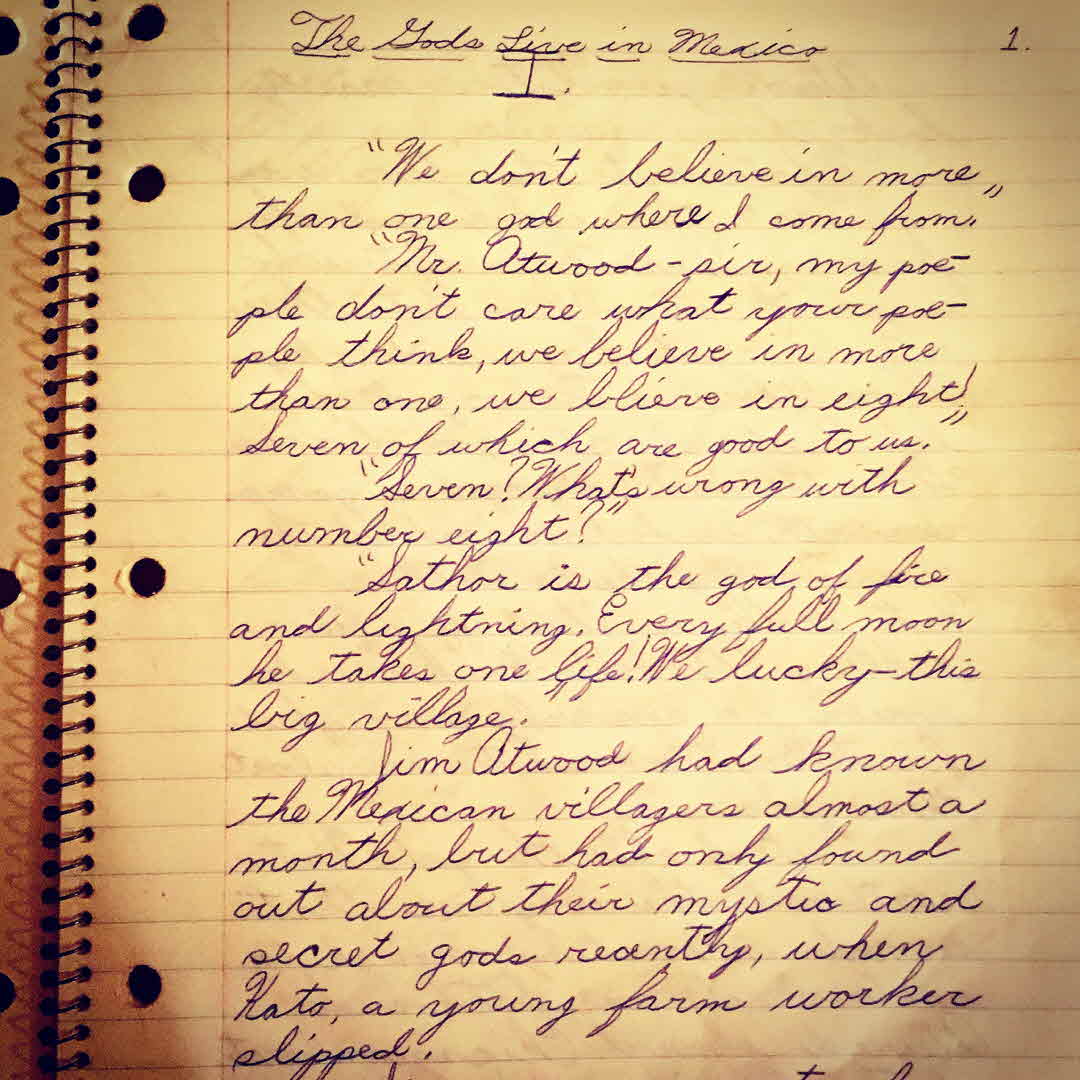 The Gods Live in Mexico 1.
I.
"We don't believe in more
than one god where I come from."
"Mr. Atwood - sir, my poe-
ple don't care what your poe-
ple think, we believe in more
than one, we blieve in eight!
Seven of which are good to us."
"Seven? What's wrong with
number eight?"
"Sathor is the god of fire
and lightning. Every full moon
he takes one life! We lucky-this
big village."
Jim Atwood had known
the Mexican villagers almost a
month, but had only found
out about their mystic and
secret gods recently, when
Kato, a young farm worker
slipped.